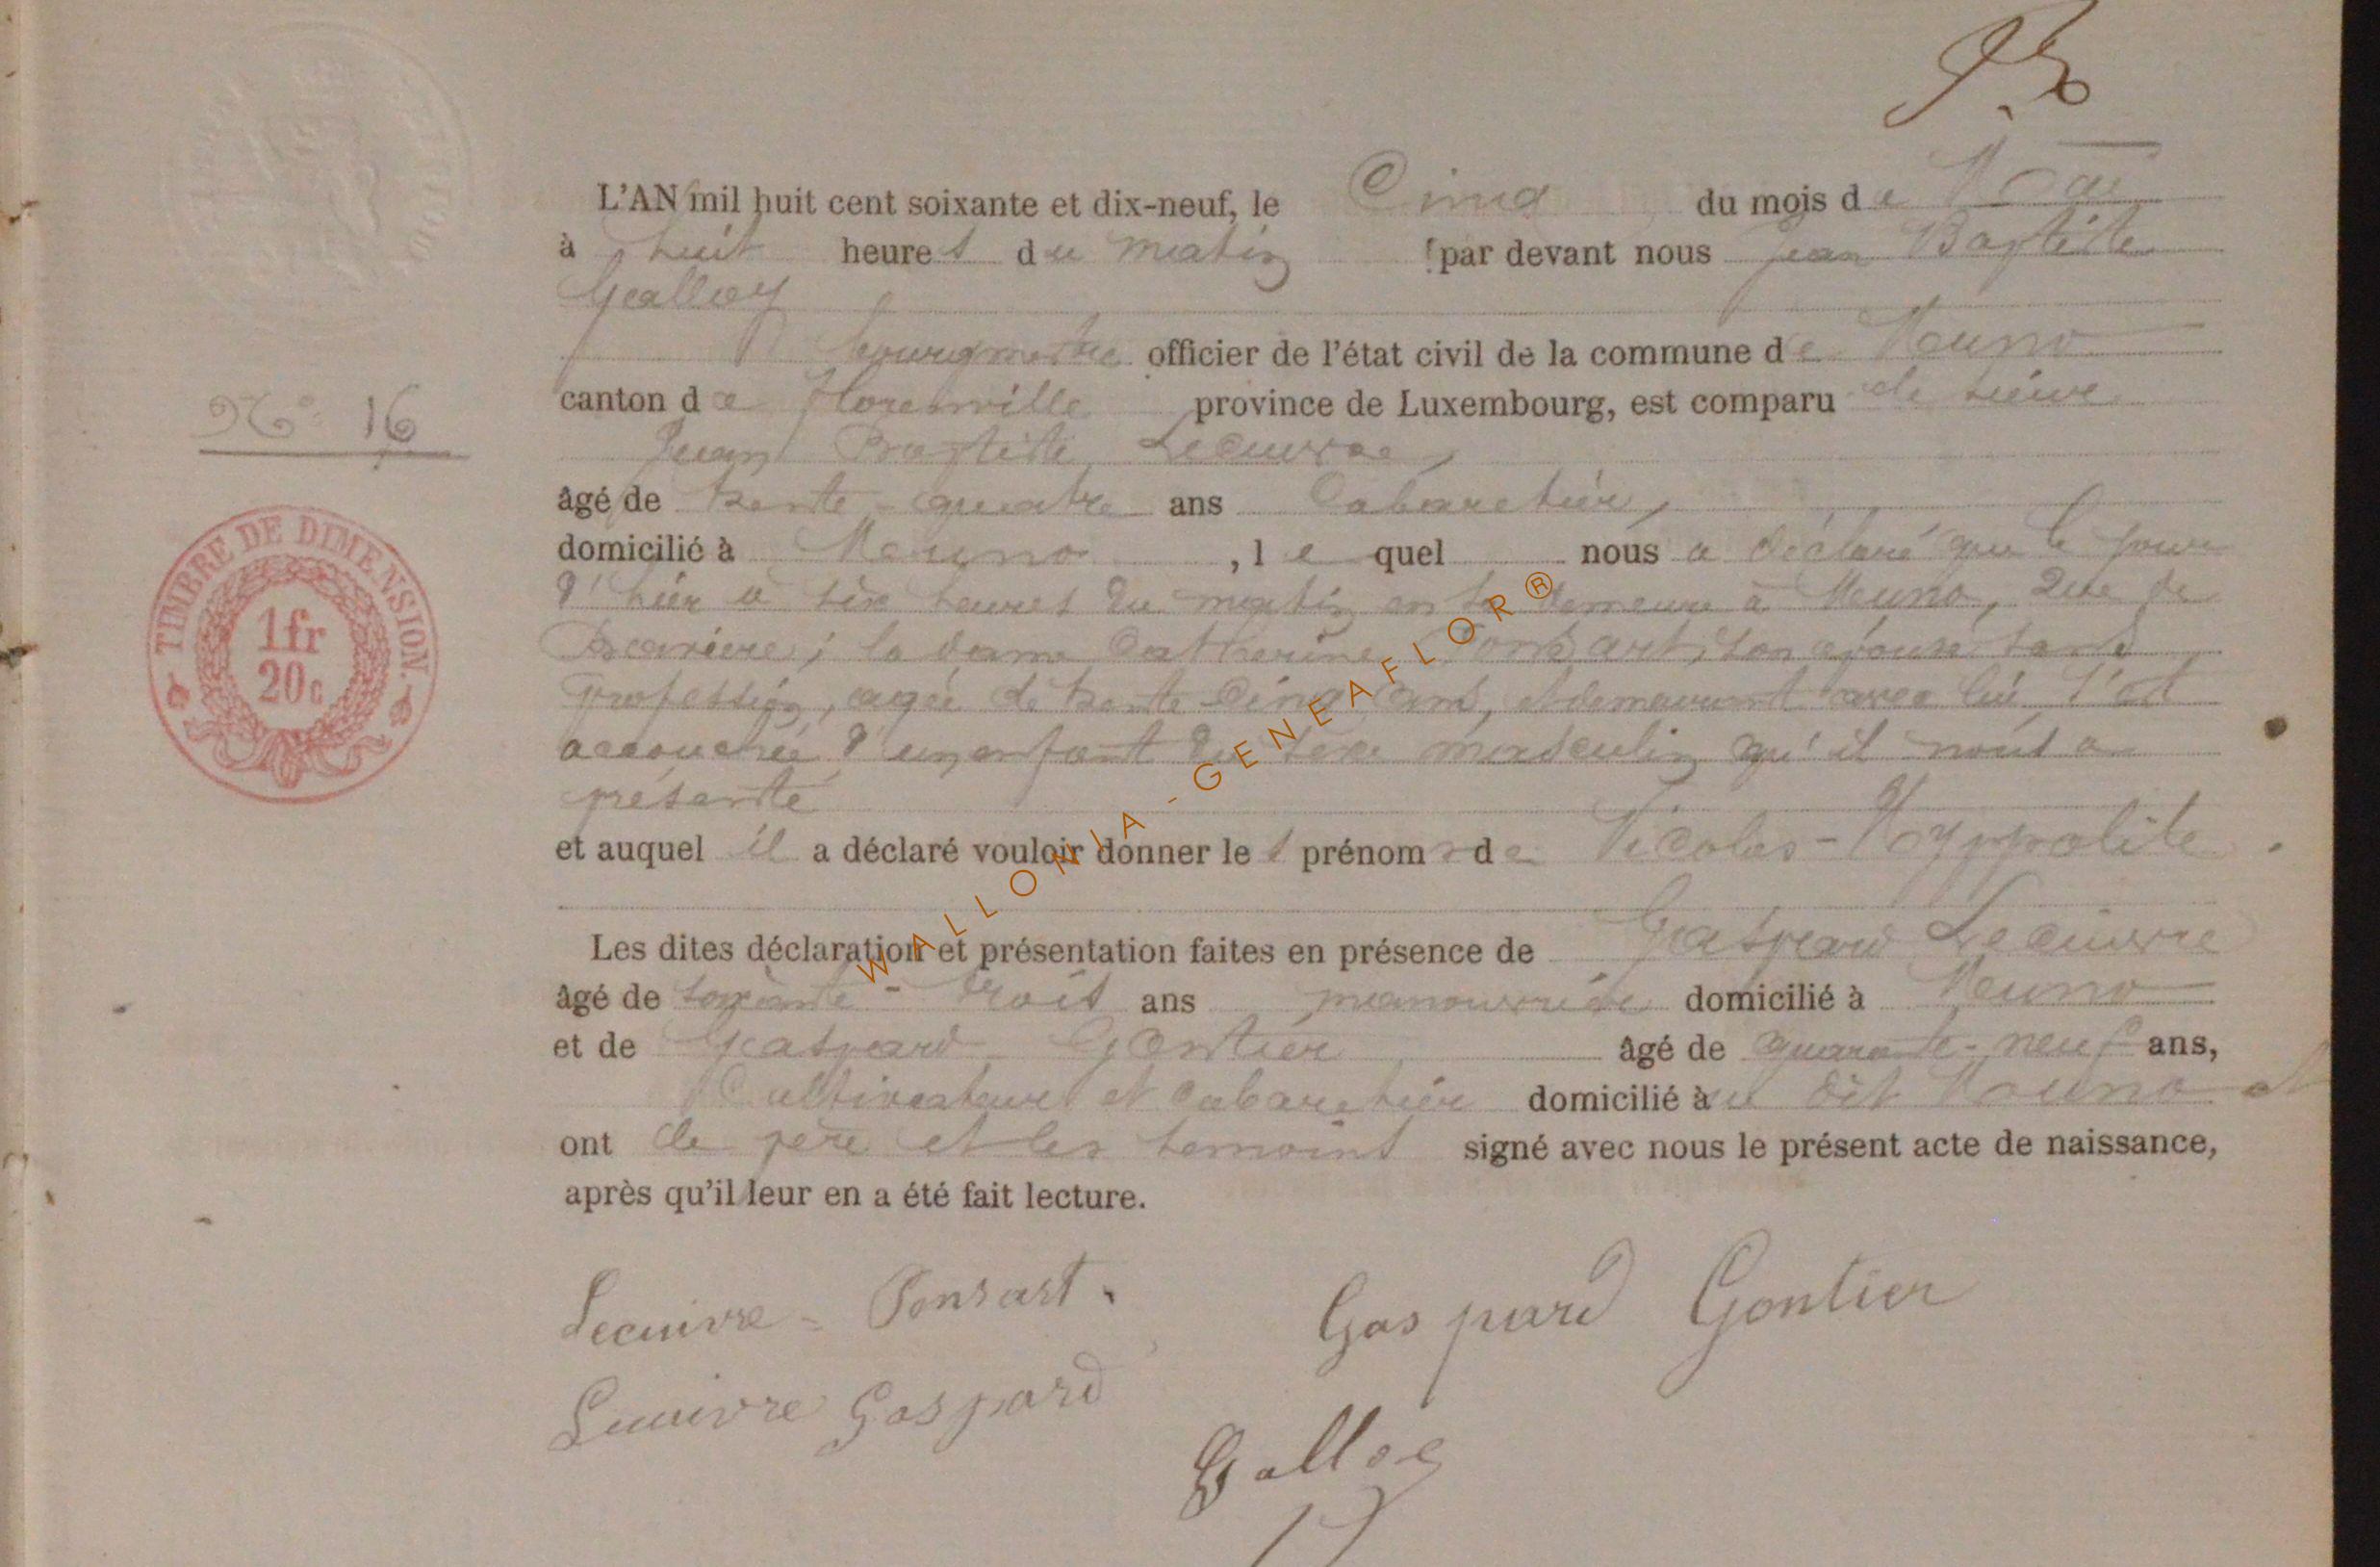 L'AN mil huit cent soixante et dix-neuf, le Cinq du mois de Mai
à huit heures du matin par devant nous Jean Baptiste
Galloy
bourgmestre officier de l'état civil de la commune de Muno
canton de Florenville province de Luxembourg, est comparu le sieur
Jean Baptiste Lecuivre,
âgé de trente-quatre ans Cabaretier,
domicilié à Muno, lequel nous a déclaré que le jour
d'hier à six heures du matin en sa demeure à Muno, rue de
; la dame Catherine Ponsart, son épouse sans
profession, agée de trente cinq ans, et demeurant avec lui, s'est
accouchée d'un enfant du sexe masculin qu'il nous a
présenté
et auquel il a déclaré vouloir donner les prénoms de Nicolas-Hyppolite
Les dites déclaration et présentation faites en présence de Gaspard Lecuivre
N° 16
âgé de soixante-trois ans manouvrier domicilié à Muno
et de Gaspard Gontier âgé de quarante-neuf ans,
Cultivateur et cabaretier domicilié au dit Muno et
ont le père et les temoins signé avec nous le présent acte de naissance,
après qu'il leur en a été fait lecture.
TIMBRE DE DIMENSION.
1fr
20c
Lecuivre-Ponsart.
Gaspard Gontier
Lecuivre Gaspard
Galloy
WALLONIA-GENEAFLOR®